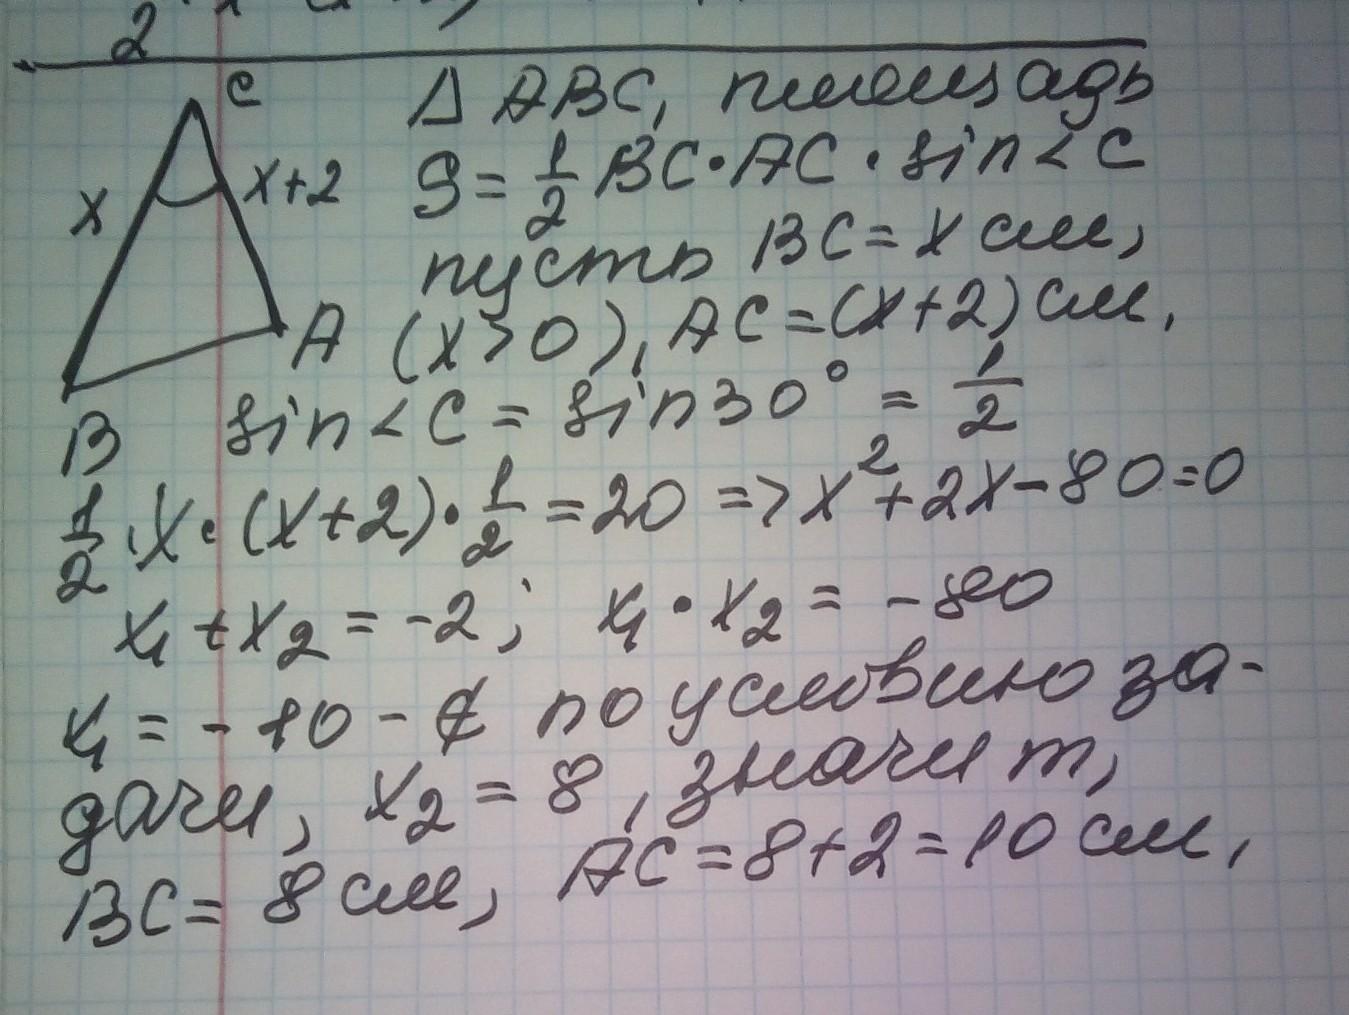 2
C
Δ ABC, площадь
x
x+2
S = 1/2 BC · AC · sin < C
пусть BC = x см,
A
(x > 0), AC = (x+2) см,
B
sin < C = sin 30° = 1/2
1/2 · x · (x+2) · 1/2 = 20 => x² + 2x - 80 = 0
x₁ + x₂ = -2; x₁ · x₂ = -80
x₁ = -10 - ∉ по условию за-
дачи, x₂ = 8, значит,
BC = 8 см, AC = 8+2 = 10 см,